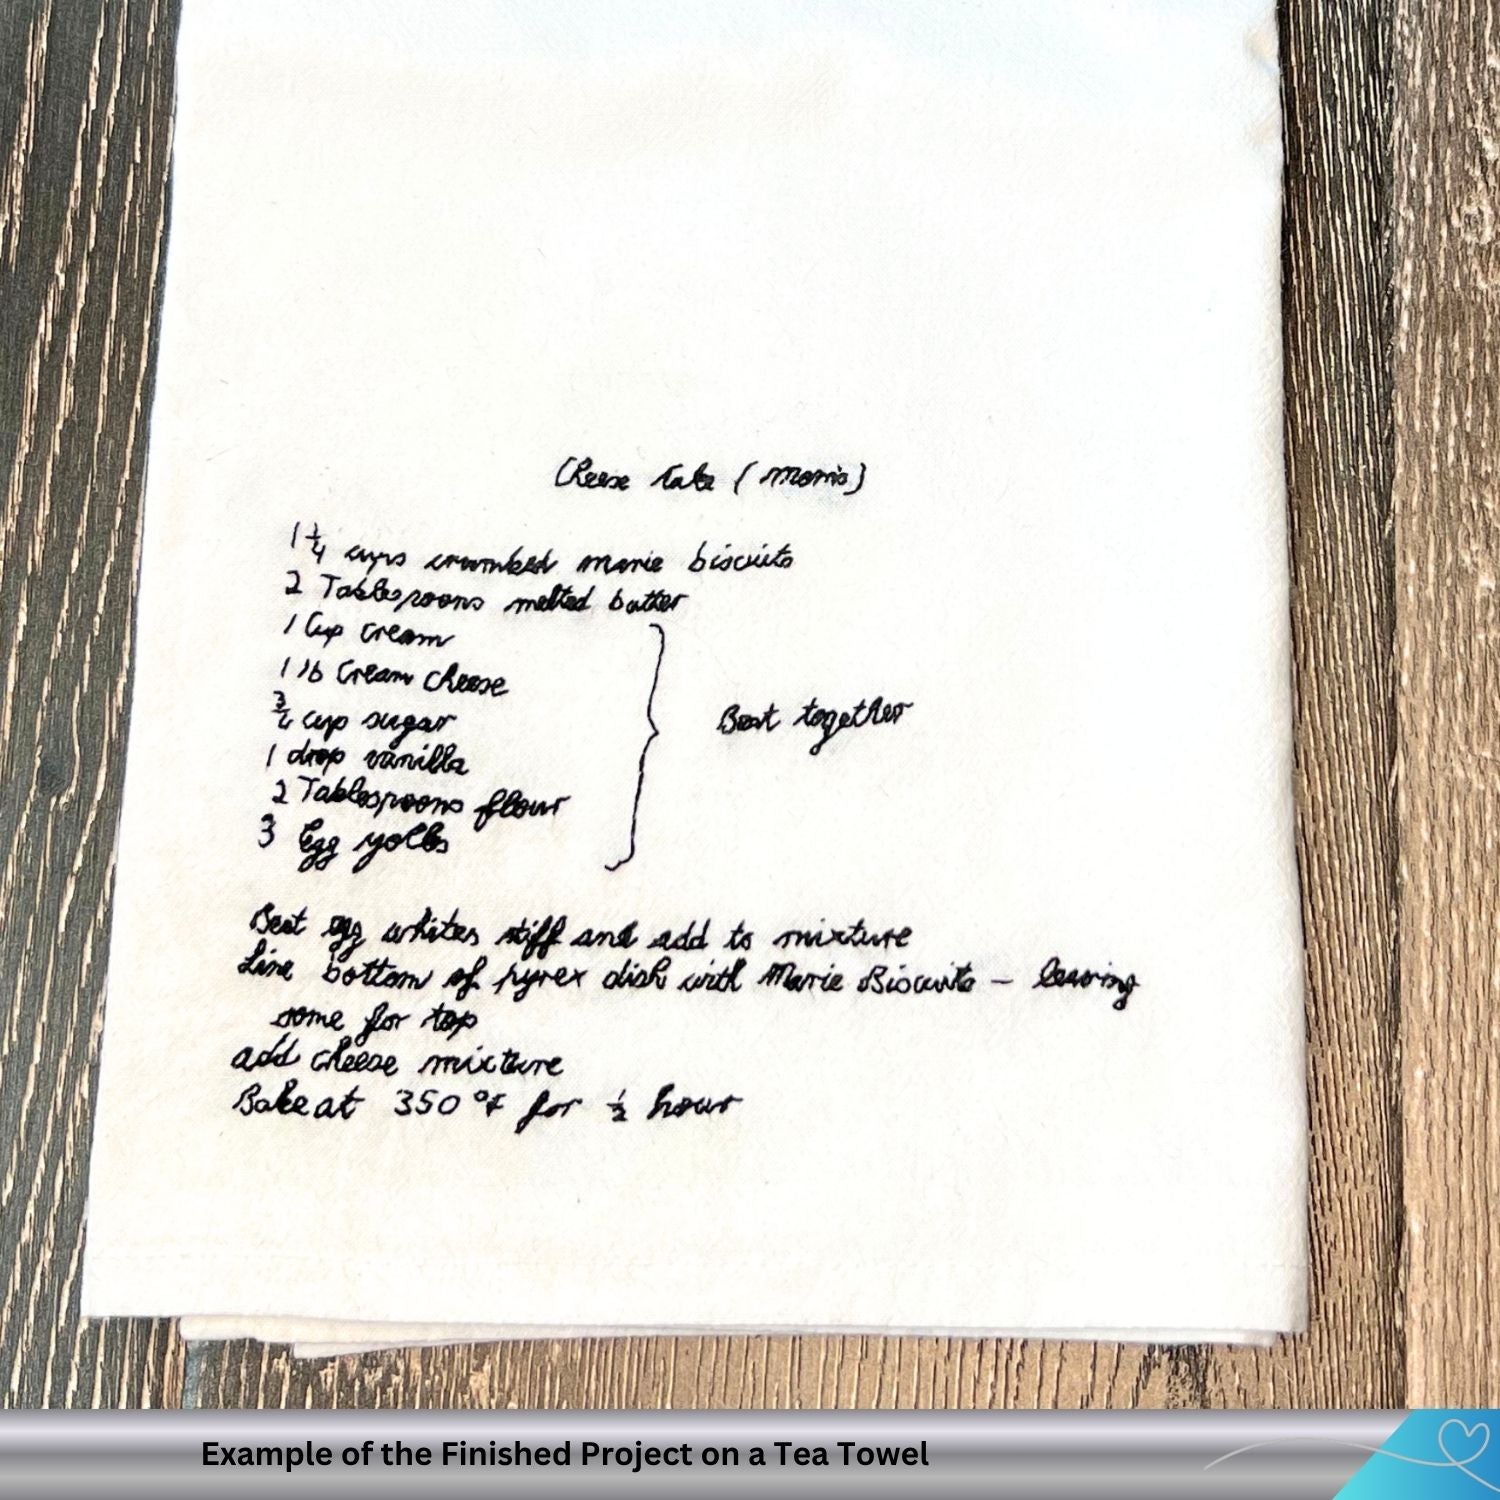 Cheese Cake (Mom's)
1 1/4 cups crumbed marie biscuits
2 Tablespoons melted butter
1 Cup cream
1 lb Cream cheese
3/4 cup sugar
1 drop vanilla
2 Tablespoons flour
3 Egg yolks
Beat together
Beat egg whites stiff and add to mixture
Line bottom of pyrex dish with Marie Biscuits – leaving
some for top
add cheese mixture
Bake at 350 °F for 1/2 hour
Example of the Finished Project on a Tea Towel